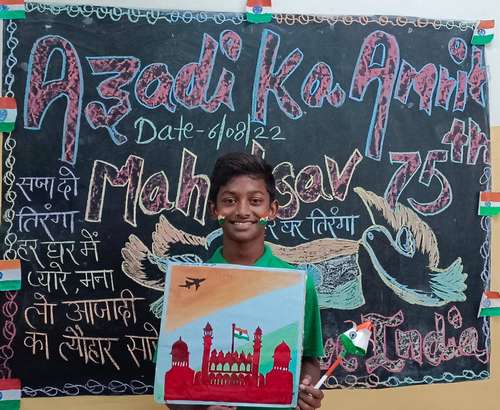 Azadi Ka Amrit
Date-6/08/22
Mahotsav 75th
सजा दो
तिरंगा
हर घर तिरंगा
हर घर में
प्यारे, मना
लो आजादी
का त्यौहार सारे
India